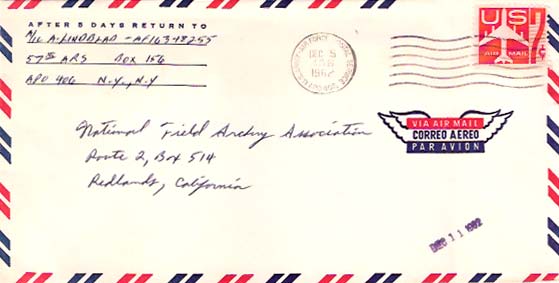 AFTER 5 DAYS RETURN TO
A/1C A. LINDBLAD - AF16348255
57TH ARS BOX 156
APO 406 N.Y., N.Y
AIR FORCE POSTAL SERVICE
DEC 5
1962
US
AIR MAIL
7¢
VIA AIR MAIL
CORREO AEREO
PAR AVION
National Field Archery Association
Route 2, Box 514
Redlands, California
DEC 11 1962